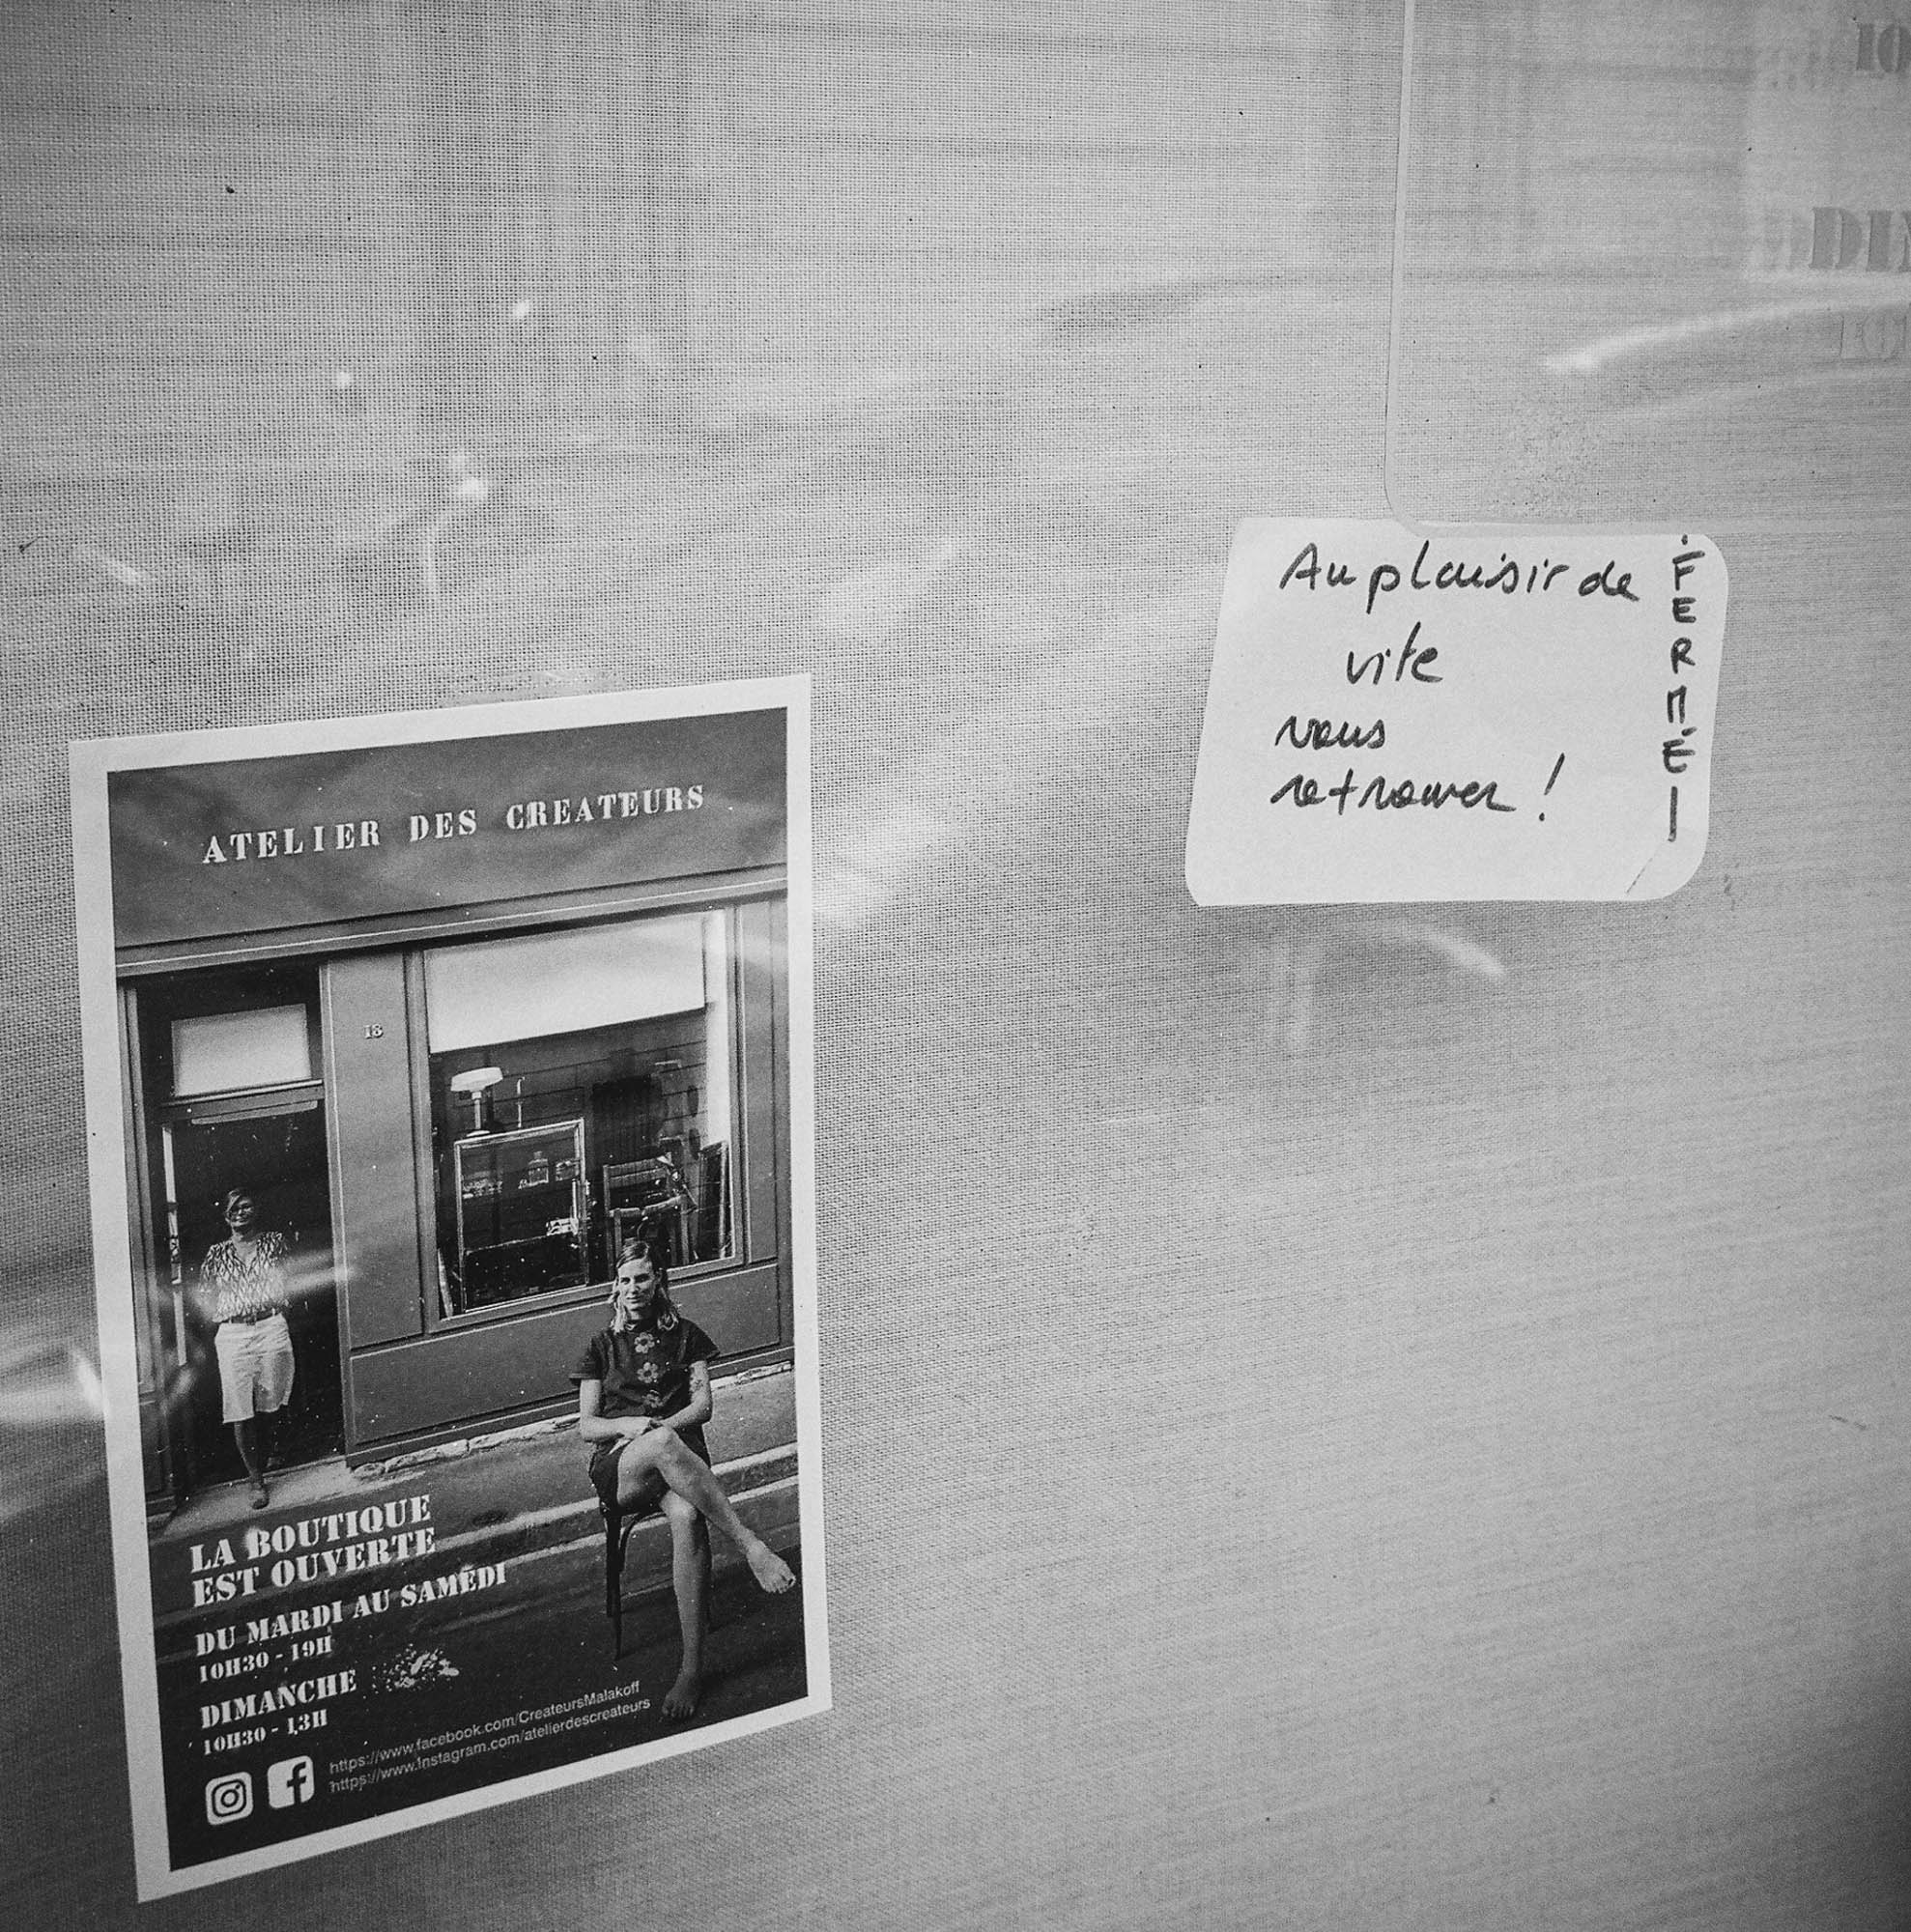 Au plaisir de
vite
vous
retrouver !
FERMÉ
ATELIER DES CREATEURS
18
LA BOUTIQUE
EST OUVERTE
DU MARDI AU SAMEDI
10H30 - 19H
DIMANCHE
10H30 - 13H
https://www.facebook.com/CreateursMalakoff
https://www.instagram.com/atelierdescreateurs